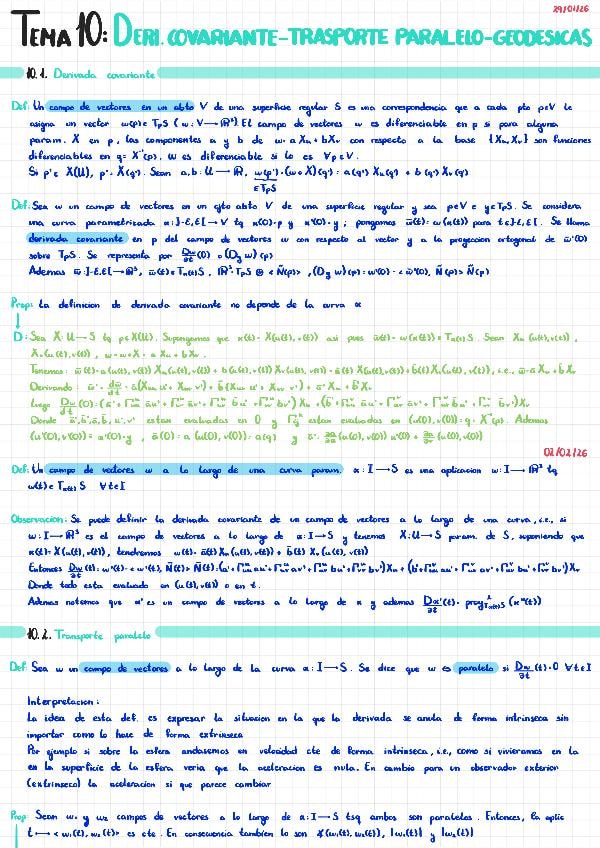 29/01/26
TEMA 10: DERI. COVARIANTE-TRASPORTE PARALELO-GEODESICAS
10.1. Derivada covariante
Def: Un campo de vectores en un abto V de una superficie regular S es una correspondencia que a cada pto p∈V le
asigna un vector w(p)∈TpS (w: V→ℝ³). El campo de vectores w es diferenciable en p si para alguna
param. X en p, las componentes a y b de w=aXu+bXv con respecto a la base {Xu,Xv} son funciones
diferenciables en q=X⁻¹(p). w es diferenciable si lo es ∀p∈V.
Si p'∈X(U), p'=X(q'). Sean a,b: U→ℝ, w(p')=(w∘X)(q')=a(q')Xu(q')+b(q')Xv(q')
∈TpS
Def: Sea w un campo de vectores en un cjto abto V de una superficie regular y sea p∈V e y∈TpS. Se considera
una curva parametrizada α:]-ε,ε[→V tq α(0)=p y α'(0)=y; pongamos w̄(t)=w(α(t)) para t∈]-ε,ε[. Se llama
derivada covariante en p del campo de vectores w con respecto al vector y a la proyeccion ortogonal de w̄'(0)
sobre TpS. Se representa por Dw/∂t (0) o (Dy w)(p)
Ademas w̄:]-ε,ε[→ℝ³, w̄(t)∈Tα(t)S, ℝ³=TpS⊕<N(p)>, (Dy w)(p)=w̄'(0)-<w̄'(0),N(p)>N(p)
Prop: La definicion de derivada covariante no depende de la curva α
D: Sea X:U→S tq p∈X(U). Supongamos que α(t)=X(u(t),v(t)) asi pues w̄(t)=w(α(t))∈Tα(t)S. Sean Xu(u(t),v(t)),
Xv(u(t),v(t)), w=w∘X=aXu+bXv.
Tenemos: w̄(t)=a(u(t),v(t))Xu(u(t),v(t))+b(u(t),v(t))Xv(u(t),v(t))=ā(t)Xu(u(t),v(t))+b̄(t)Xv(u(t),v(t)), i.e., w̄=āXu+b̄Xv
Derivando: w̄'=dw̄/dt=ā(Xuu u'+Xuv v')+b̄(Xvu u'+Xvv v')+ā'Xu+b̄'Xv
Donde ā',b̄',ā,b̄,u',v' estan evaluadas en 0 y estan evaluadas en (u(0),v(0))=q=X⁻¹(p). Ademas
(u'(0),v'(0))=α'(0)=y, ā(0)=a(u(0),v(0))=a(q) y ā'=∂a/∂u(u(0),v(0))u'(0)+∂a/∂v(u(0),v(0))
02/02/26
Def: Un campo de vectores w a lo largo de una curva param. α:I→S es una aplicacion w:I→ℝ³ tq
w(t)∈Tα(t)S ∀t∈I
Observacion: Se puede definir la derivada covariante de un campo de vectores a lo largo de una curva, i.e., si
w:I→ℝ³ es el campo de vectores a lo largo de α:I→S y tenemos X:U→S param. de S, suponiendo que
α(t)=X(u(t),v(t)), tendremos w(t)=ā(t)Xu(u(t),v(t))+b̄(t)Xv(u(t),v(t))
Donde todo esta evaluado en (u(t),v(t)) o en t.
Ademas notemos que α' es un campo de vectores a lo largo de α y ademas Dα'/∂t (t)=proyTα(t)S(α''(t))
10.2. Transporte paralelo
Def: Sea w un campo de vectores a lo largo de la curva α:I→S. Se dice que w es paralelo si Dw/∂t (t)=0 ∀t∈I
Interpretacion:
La idea de esta def. es expresar la situacion en la que la derivada se anula de forma intrinseca sin
importar como lo hase de forma extrinseca
Por ejemplo si sobre la esfera andasemos en velocidad cte de forma intrinseca, i.e., como si vivieramos en la
en la superficie de la esfera veria que la aceleracion es nula. En cambio para un observador exterior
(extrinseco) la aceleracion si que parece cambiar
Prop: Sean w₁ y w₂ campos de vectores a lo largo de α:I→S tsq ambos son paralelos. Entonces, la aplic
t↦<w₁(t),w₂(t)> es cte. En consecuencia tambien lo son ∢(w₁(t),w₂(t)), |w₁(t)| y |w₂(t)|